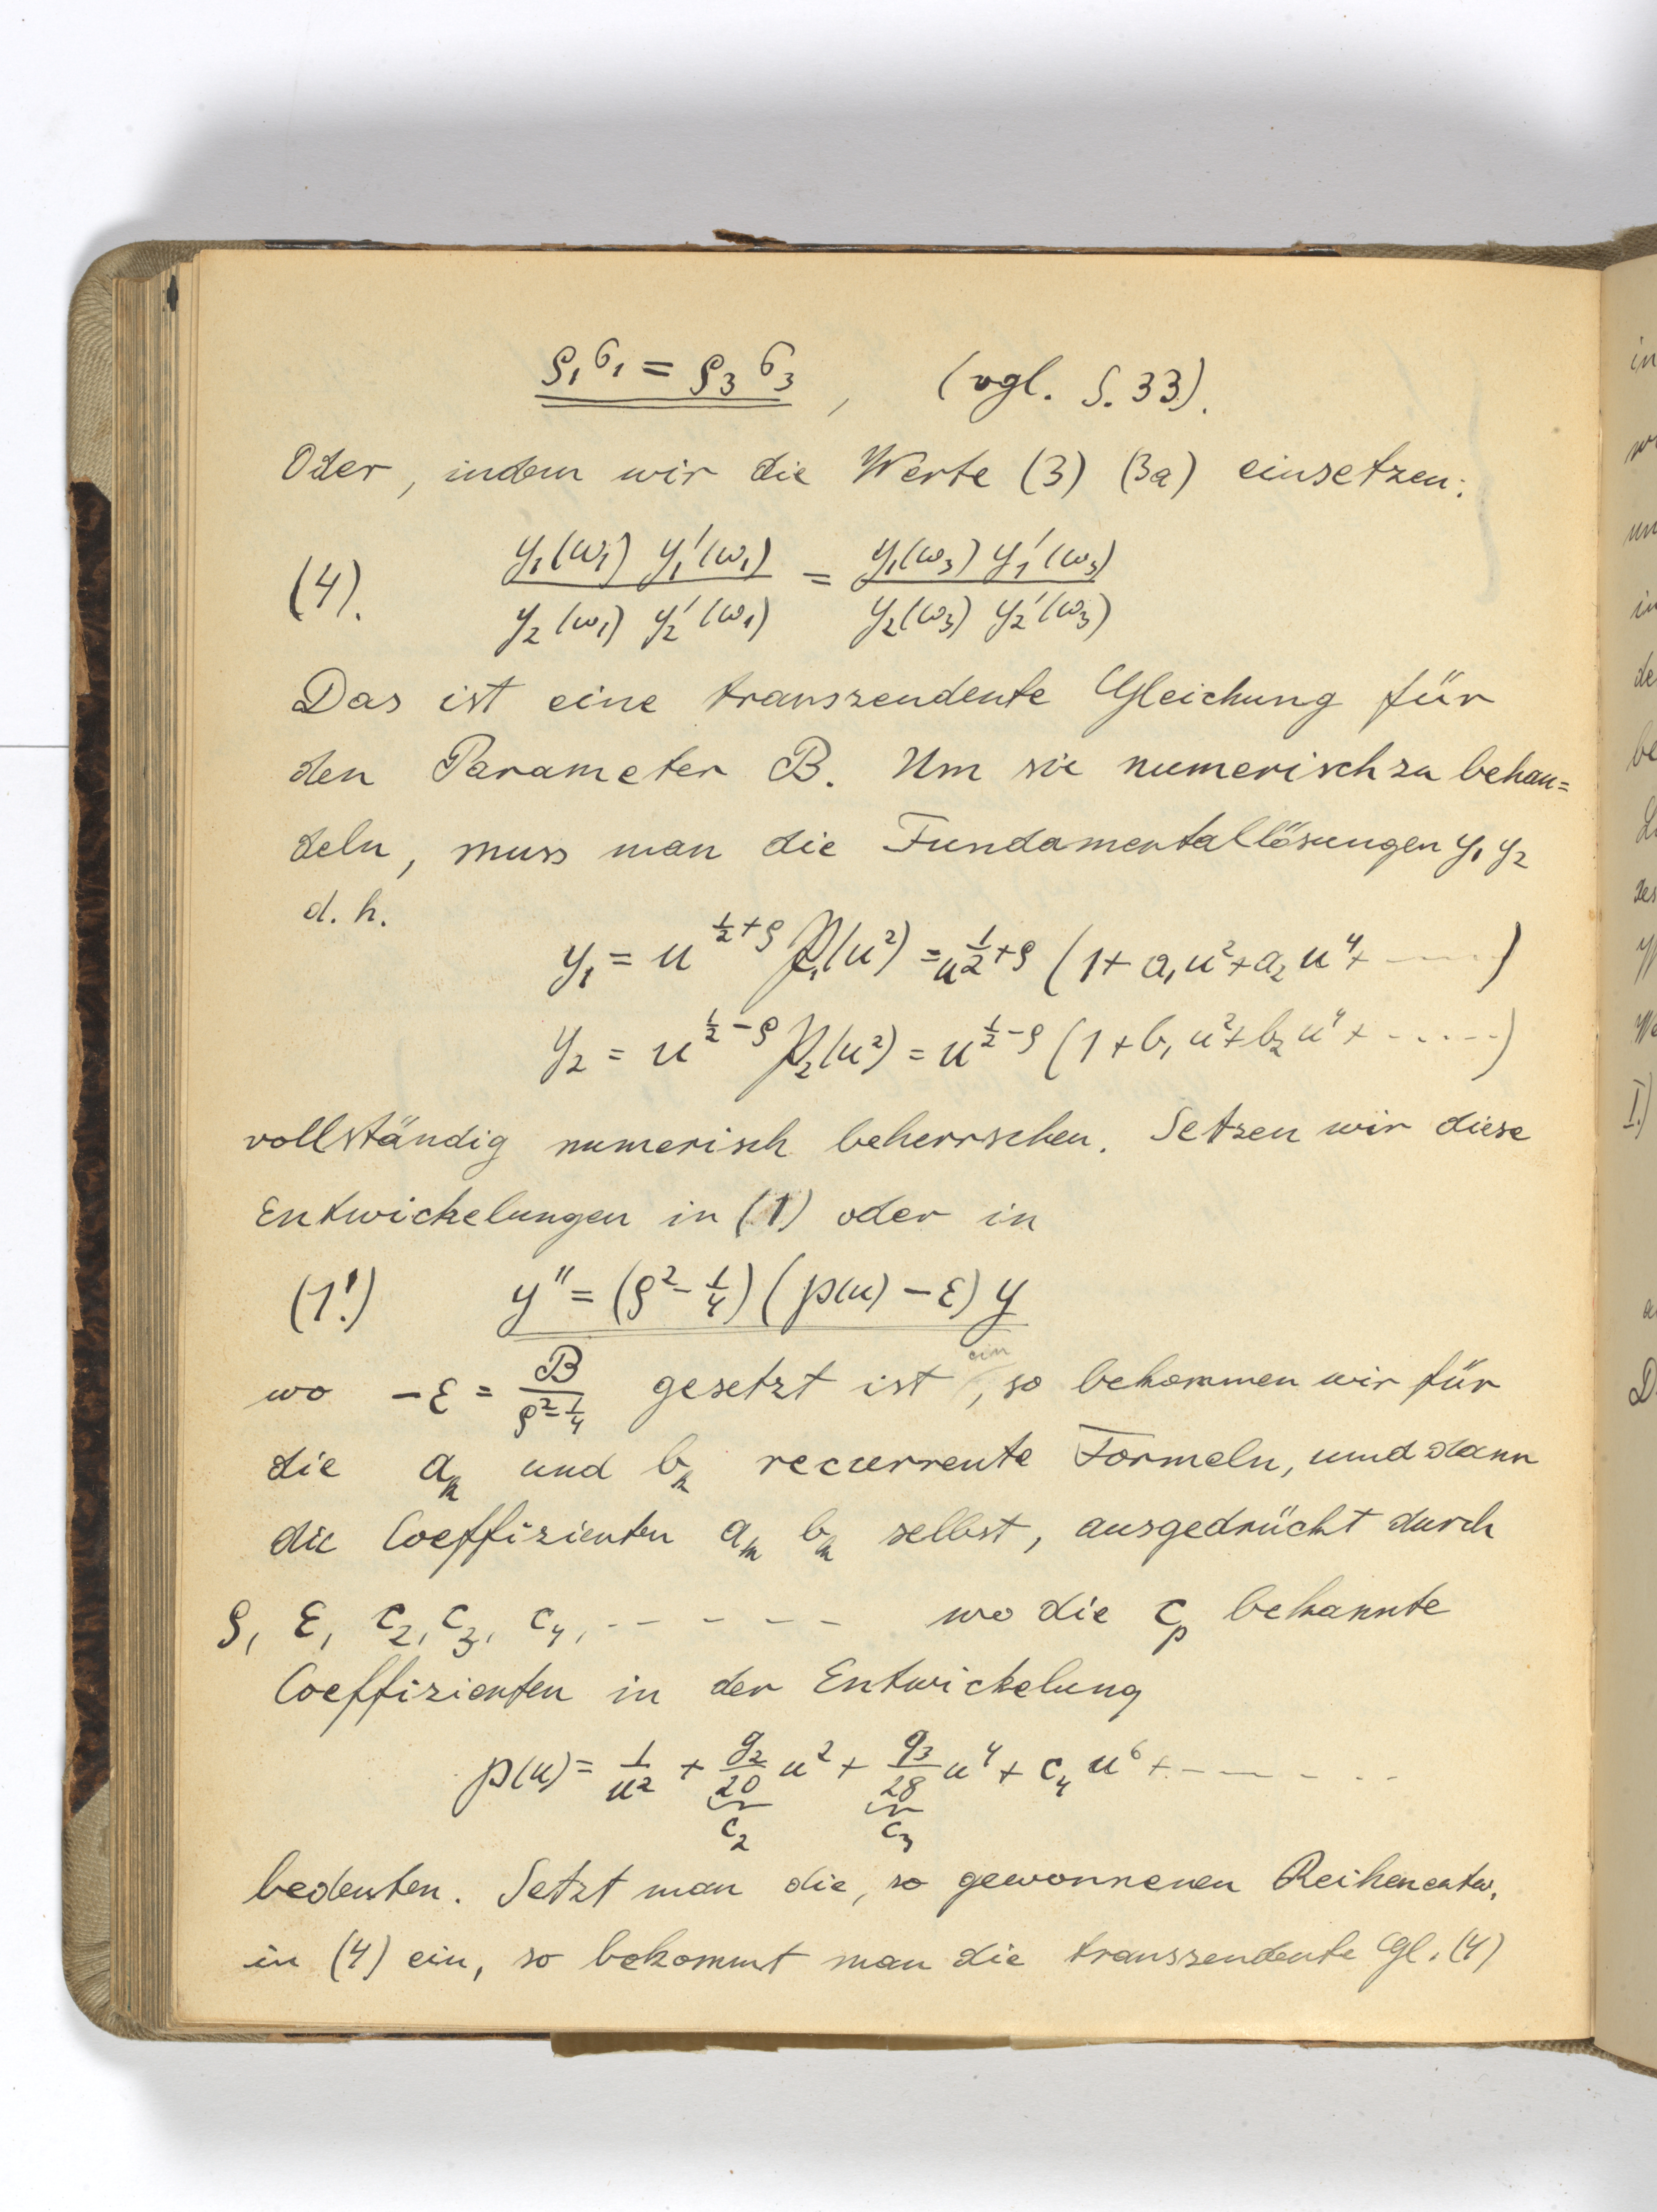 ϱ₁σ₁ = ϱ₃σ₃, (vgl. S. 33).
Oder, indem wir die Werte (3) (3a) einsetzen:
(4). y₁(ω₁) y₁'(ω₁) / y₂(ω₁) y₂'(ω₁) = y₁(ω₃) y₁'(ω₃) / y₂(ω₃) y₂'(ω₃)
Das ist eine transzendente Gleichung für
den Parameter B. Um sie numerisch zu behan=
deln, muss man die Fundamentallösungen y₁ y₂
d. h.
y₁ = u^{1/2+ϱ} P₁(u²) = u^{1/2+ϱ} (1+ a₁u²+a₂u⁴+ ----)
y₂ = u^{1/2-ϱ} P₂(u²) = u^{1/2-ϱ} (1+b₁u²+b₂u⁴+ -----)
vollständig numerisch beherrschen. Setzen wir diese
Entwickelungen in (1) oder in
(1'.) y'' = (ϱ² - 1/4) (℘(u) - ε) y
wo -ε = B / (ϱ²-1/4) gesetzt ist ein, so bekommen wir für
die aₙ und bₙ recurrente Formeln, und dann
die Coeffizienten aₙ bₙ selbst, ausgedrückt durch
ϱ, ε, c₂, c₃, c₄, ----- wo die cₚ bekannte
Coeffizienten in der Entwickelung
℘(u) = 1/u² + g₂/20 u² + g₃/28 u⁴ + c₄ u⁶ + -----
c₂ c₃
bedeuten. Setzt man die, so gewonnenen Reihenentw.
in (4) ein, so bekommt man die transzendente Gl. (4)